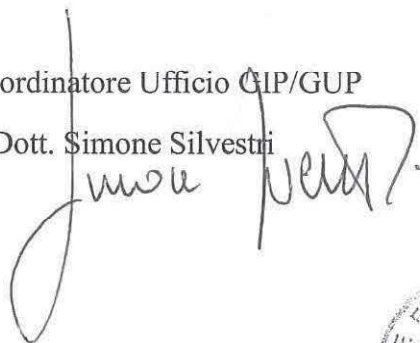 ordinatore Ufficio GIP/GUP
Dott. Simone Silvestri